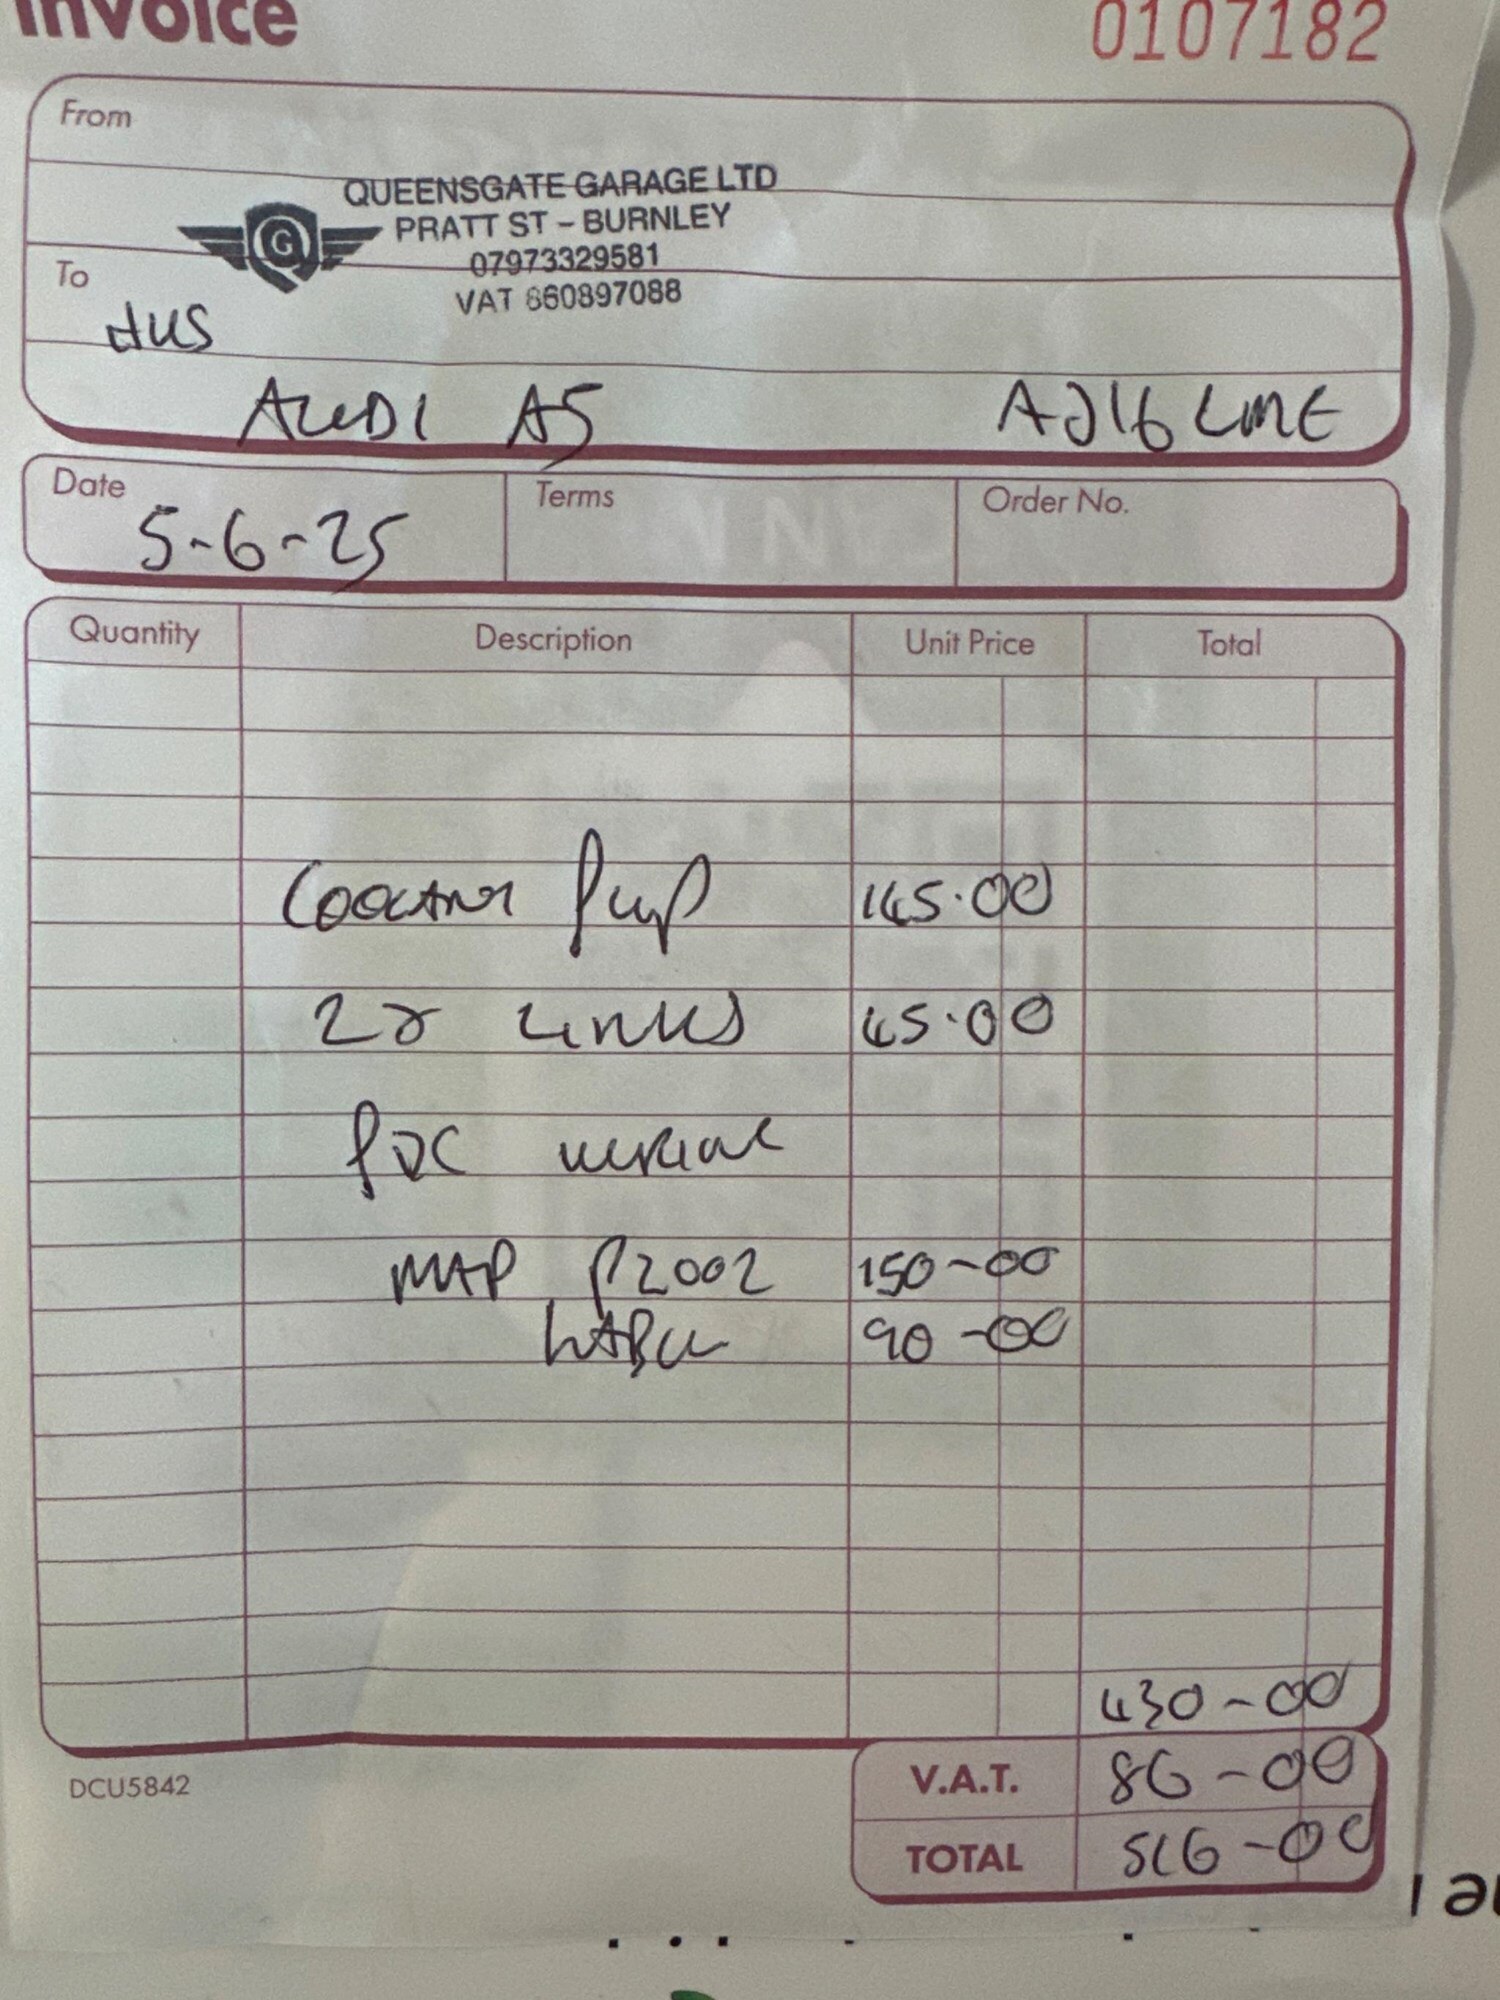 Invoice
0107182
From
QUEENSGATE GARAGE LTD
PRATT ST – BURNLEY
07973329581
VAT 860897088
To
AUDI A5 AJ16 LME
Date
5-6-25
Terms
Order No.
Quantity Description Unit Price Total
Coolant Pump 145.00
2x Links 45.00
PDC
MAP P2002 150-00
Labour 90-00
430-00
V.A.T. 86-00
TOTAL 516-00
DCU5842